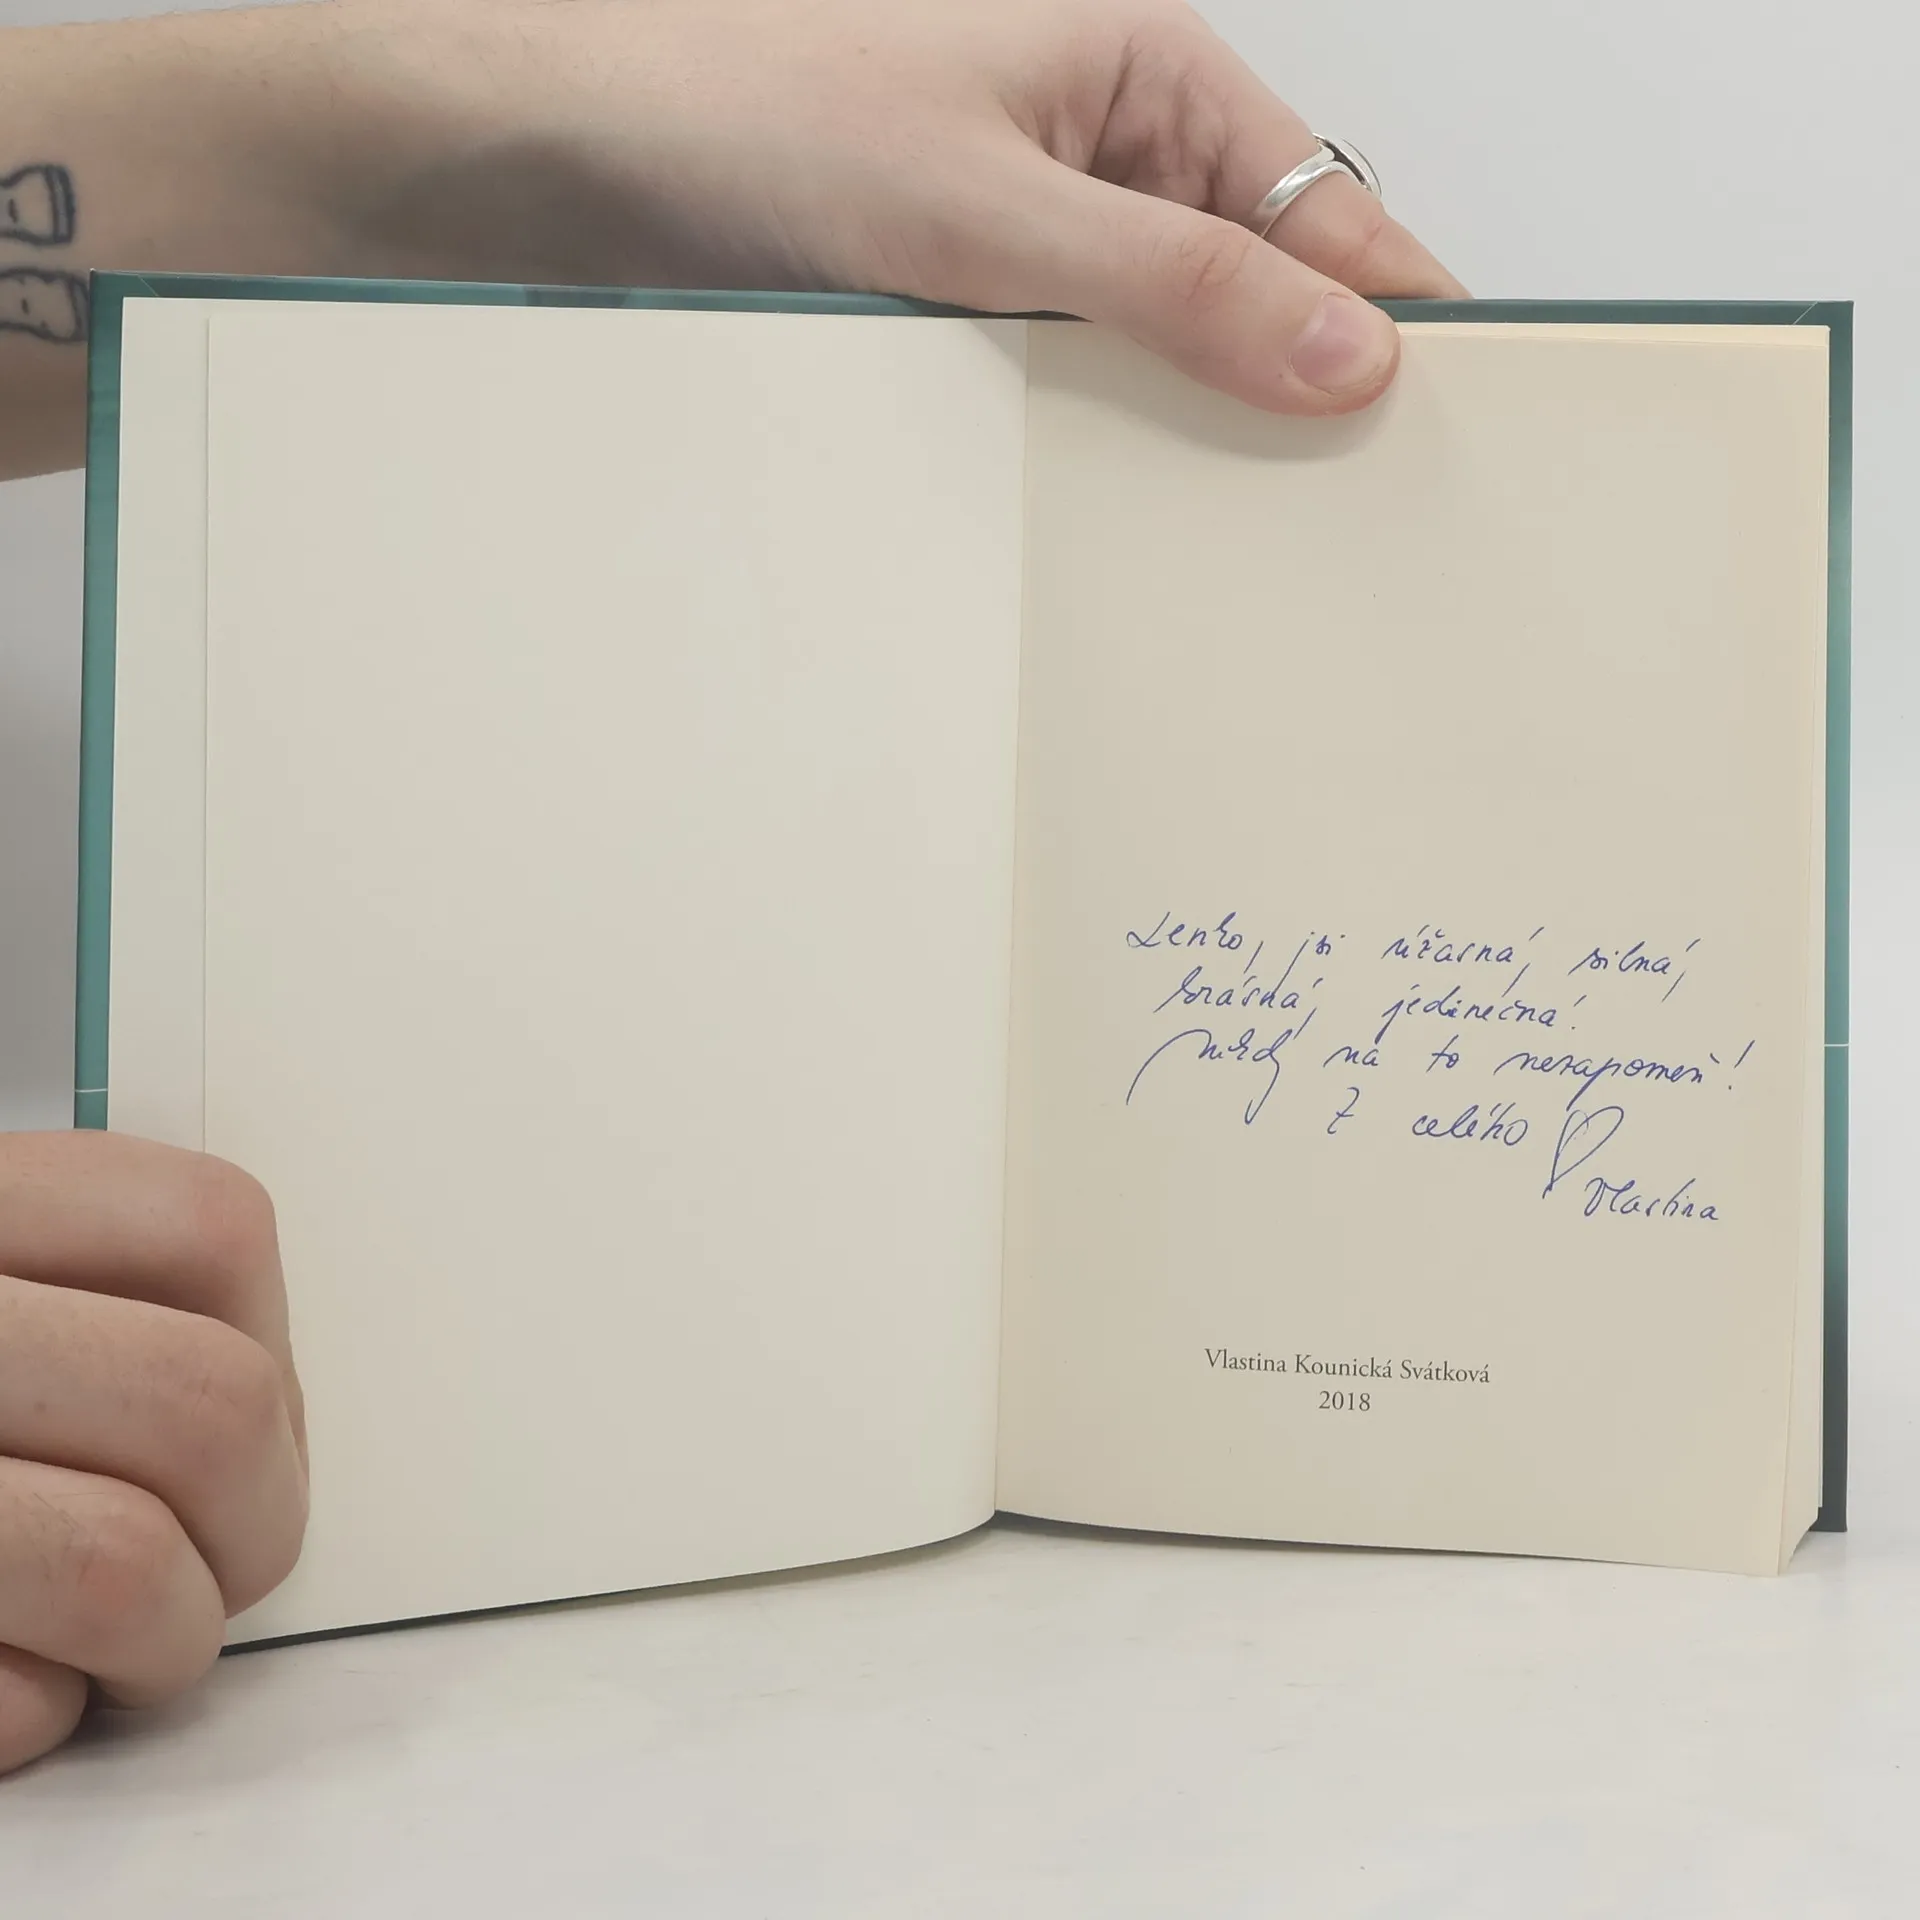 Lenko, jsi úžasná, silná,
krásná, jedinečná!
Nikdy na to nezapomeň!
Z celého
Vlastina
Vlastina Kounická Svátková
2018